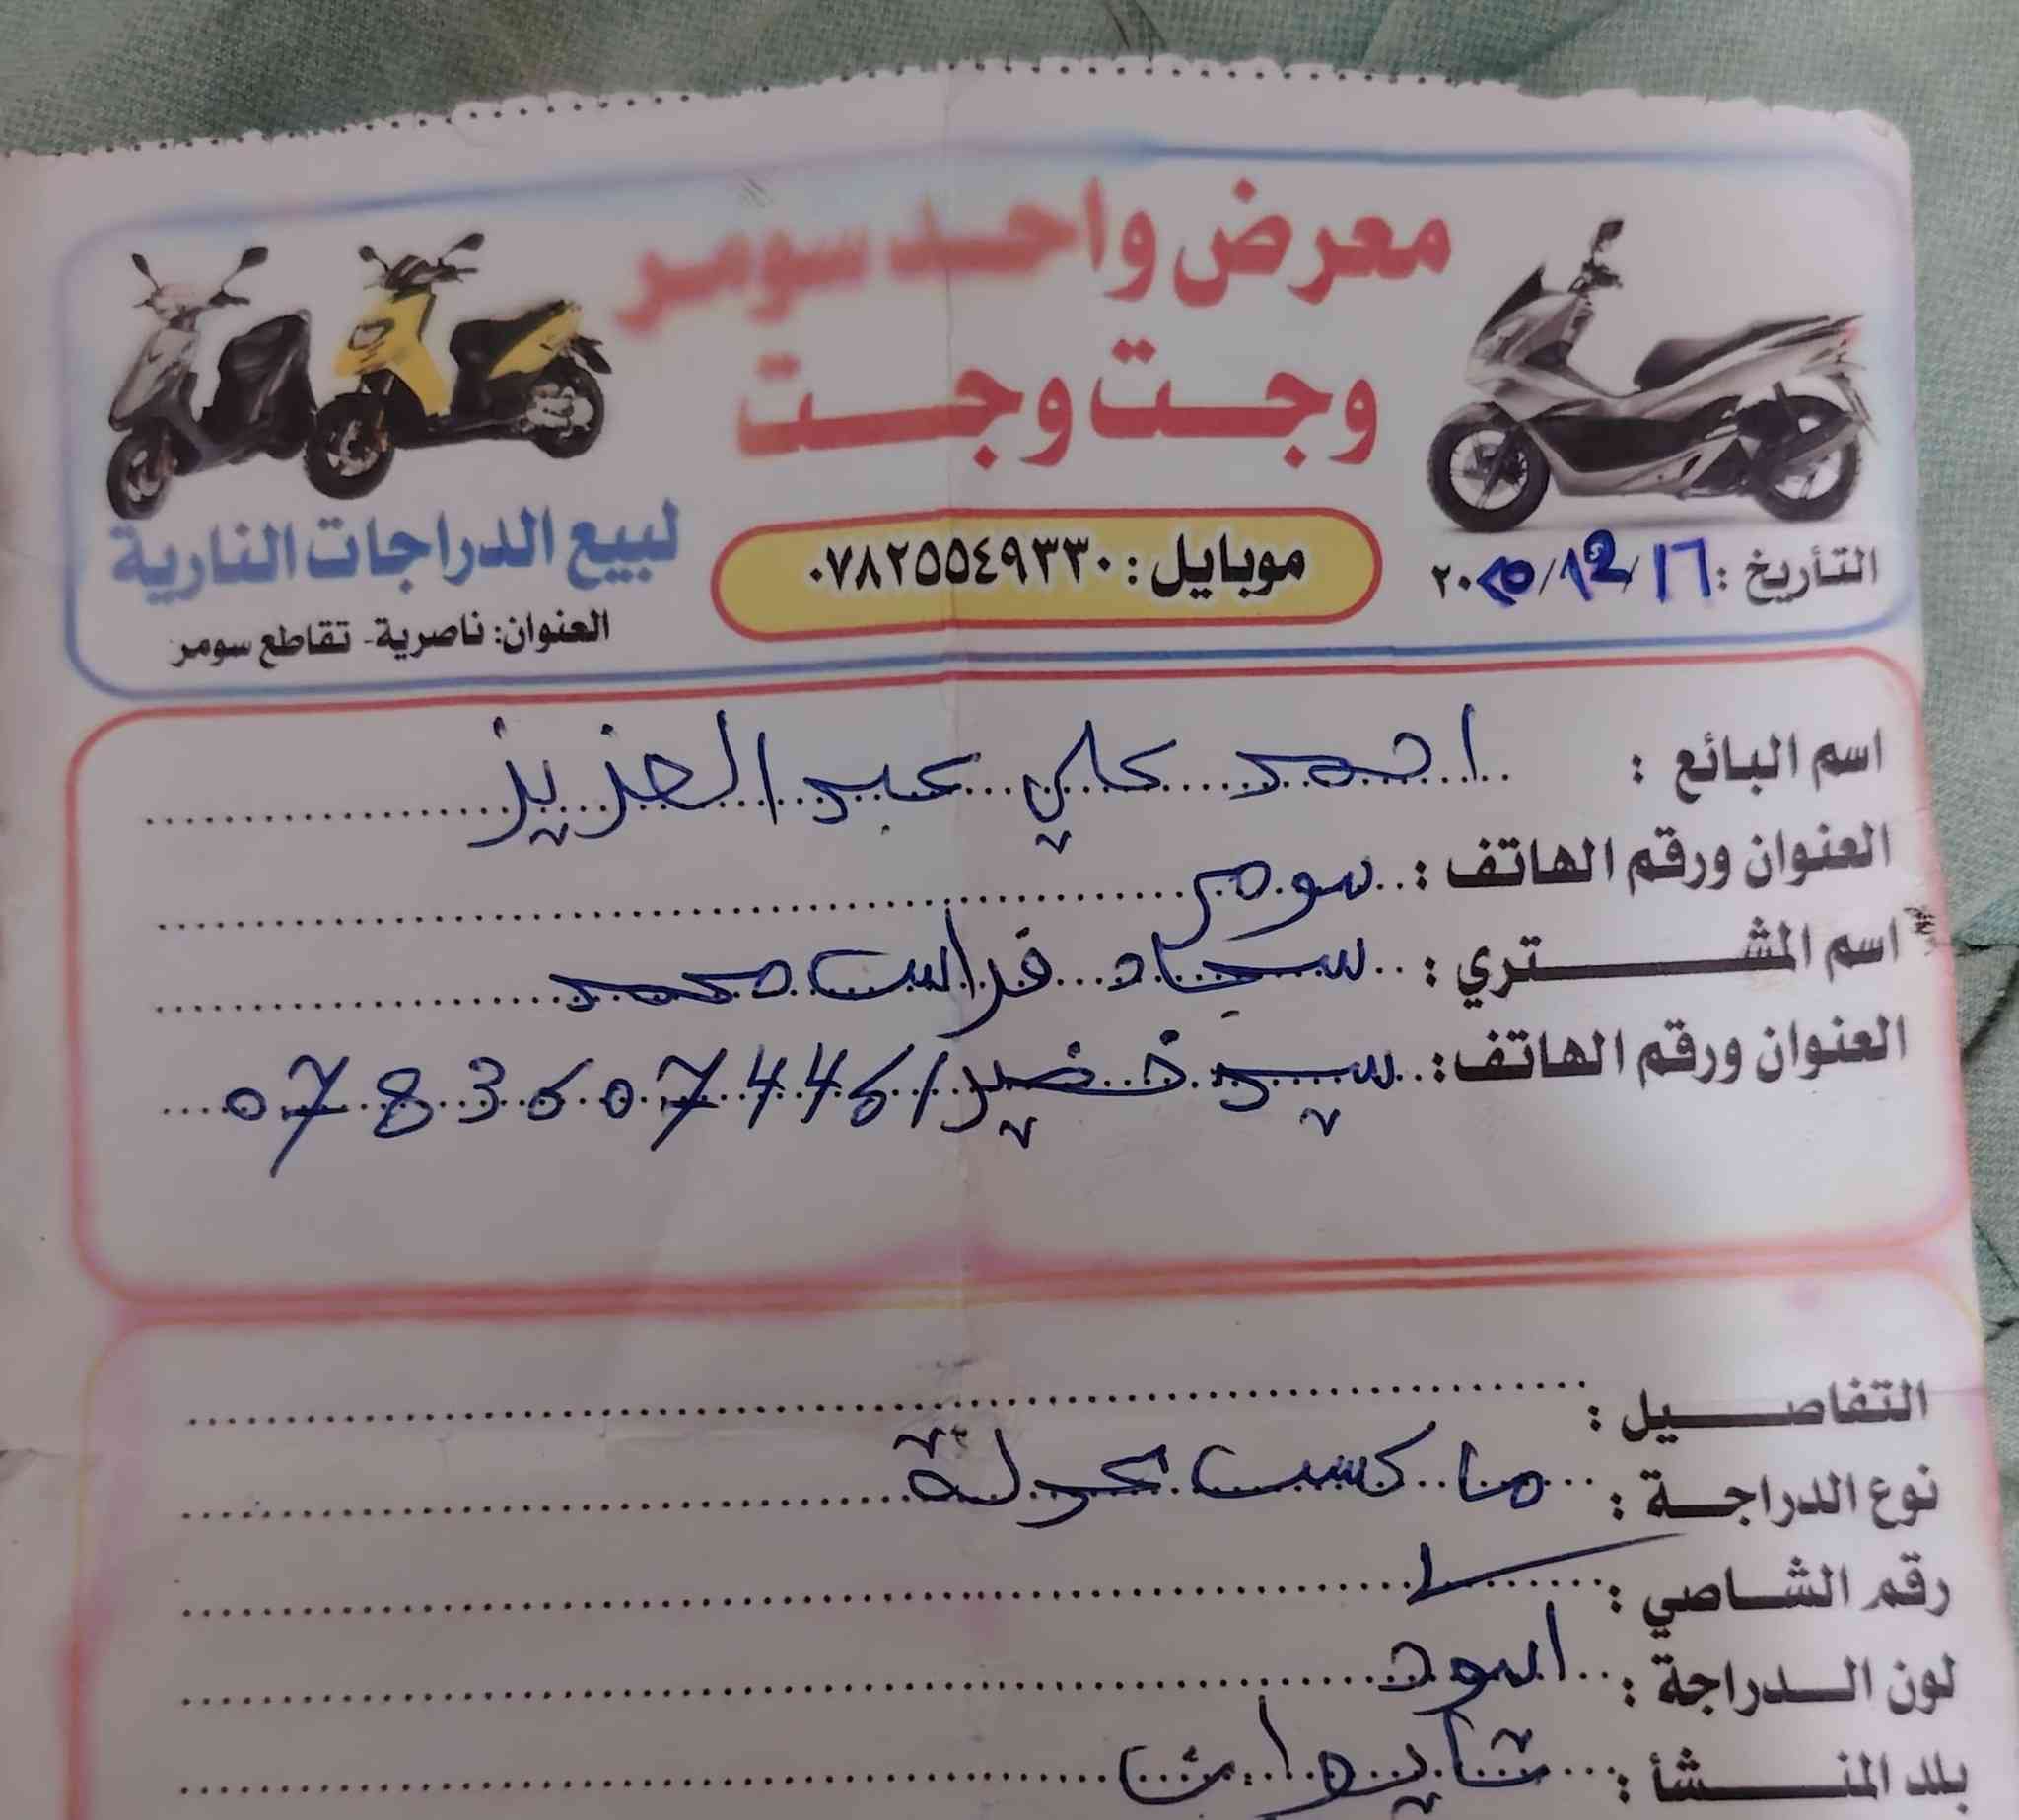 معرض واحد سومر
وجت وجت
لبيع الدراجات النارية
العنوان: ناصرية- تقاطع سومر
موبايل: ٠٧٨٢٥٥٤٩٣٣٠
التأريخ: ١٦/١2/٢٠٢٥
اسم البائع : احمد علي عبد العزيز
العنوان ورقم الهاتف : سومر
اسم المشتري : سجاد فراس محمد
العنوان ورقم الهاتف : سيد خضير / 07836074461
التفاصيل :
نوع الدراجة : ماكسب عدلة
رقم الشاصي :
لون الدراجة : اسود
بلد المنشأ : تايوان